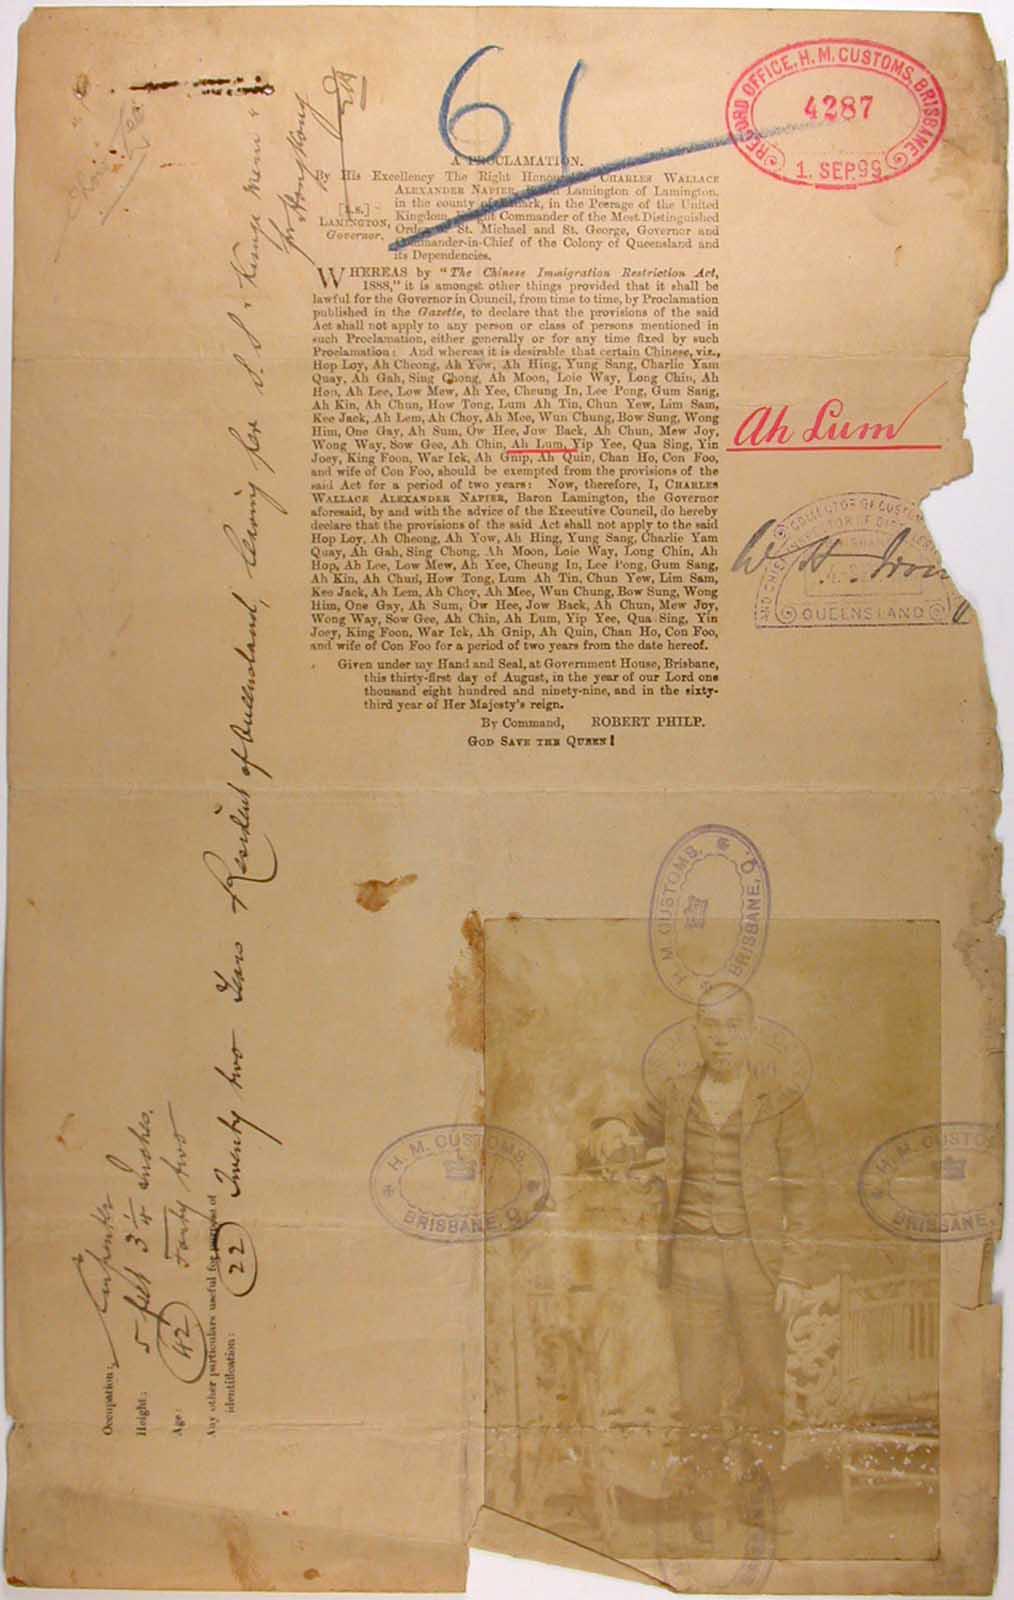 61
RECORD OFFICE, H. M. CUSTOMS, BRISBANE
4287
1. SEP. 99
A PROCLAMATION.
By His Excellency The Right Honourable CHARLES WALLACE
ALEXANDER NAPIER, Baron Lamington of Lamington,
in the county of Lanark, in the Peerage of the United
[L.S.] Kingdom, Knight Commander of the Most Distinguished
LAMINGTON, Order of St. Michael and St. George, Governor and
Governor. Commander-in-Chief of the Colony of Queensland and
its Dependencies.
WHEREAS by "The Chinese Immigration Restriction Act,
1888," it is amongst other things provided that it shall be
lawful for the Governor in Council, from time to time, by Proclamation
published in the Gazette, to declare that the provisions of the said
Act shall not apply to any person or class of persons mentioned in
such Proclamation, either generally or for any time fixed by such
Proclamation: And whereas it is desirable that certain Chinese, viz.,
Hop Loy, Ah Cheong, Ah Yow, Ah Hing, Yung Sang, Charlie Yam
Quay, Ah Gah, Sing Chong, Ah Moon, Loie Way, Long Chin, Ah
Hop, Ah Lee, Low Mew, Ah Yee, Cheung In, Lee Pong, Gum Sang,
Ah Kin, Ah Chun, How Tong, Lum Ah Tin, Chun Yew, Lim Sam,
Kee Jack, Ah Lem, Ah Choy, Ah Mee, Wun Chung, Bow Sung, Wong
Him, One Gay, Ah Sum, Ow Hee, Jow Back, Ah Chun, Mew Joy,
Wong Way, Sow Gee, Ah Chin, Ah Lum, Yip Yee, Qua Sing, Yin
Joey, King Foon, War Ick, Ah Gnip, Ah Quin, Chan Ho, Con Foo,
and wife of Con Foo, should be exempted from the provisions of the
said Act for a period of two years: Now, therefore, I, CHARLES
WALLACE ALEXANDER NAPIER, Baron Lamington, the Governor
aforesaid, by and with the advice of the Executive Council, do hereby
declare that the provisions of the said Act shall not apply to the said
Hop Loy, Ah Cheong, Ah Yow, Ah Hing, Yung Sang, Charlie Yam
Quay, Ah Gah, Sing Chong, Ah Moon, Loie Way, Long Chin, Ah
Hop, Ah Lee, Low Mew, Ah Yee, Cheung In, Lee Pong, Gum Sang,
Ah Kin, Ah Chun, How Tong, Lum Ah Tin, Chun Yew, Lim Sam,
Kee Jack, Ah Lem, Ah Choy, Ah Mee, Wun Chung, Bow Sung, Wong
Him, One Gay, Ah Sum, Ow Hee, Jow Back, Ah Chun, Mew Joy,
Wong Way, Sow Gee, Ah Chin, Ah Lum, Yip Yee, Qua Sing, Yin
Joey, King Foon, War Ick, Ah Gnip, Ah Quin, Chan Ho, Con Foo,
and wife of Con Foo for a period of two years from the date hereof.
Given under my Hand and Seal, at Government House, Brisbane,
this thirty-first day of August, in the year of our Lord one
thousand eight hundred and ninety-nine, and in the sixty-
third year of Her Majesty's reign.
By Command, ROBERT PHILP.
GOD SAVE THE QUEEN!
Ah Lum
COLLECTOR OF CUSTOMS
QUEENSLAND
W. H. Irving
Occupation: Carpenter
Height: 5 feet 3 1/4 Inches.
Age: (42) Forty two
Any other particulars useful for purpose of
identification: (22) Twenty two Years Resident of Queensland, leaving per S.S.
for Hong Kong
H. M. CUSTOMS, BRISBANE, Q.
H. M. CUSTOMS, BRISBANE, Q.
H. M. CUSTOMS BRISBANE,